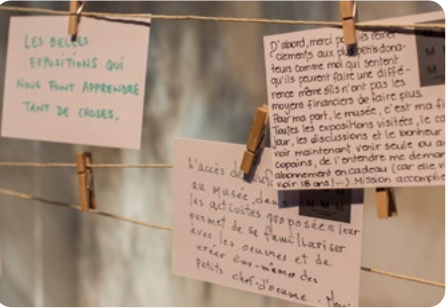 LES BELLES
EXPOSITIONS QUI
NOUS FONT APPRENDRE
TANT DE CHOSES.
D'abord, merci
clements aux dona-
teurs comme moi qui sentent
qu'ils peuvent faire une diffé-
rence même s'ils n'ont pas les
moyens financiers de faire plus.
Pour ma part, le musée, c'est ma
Toutes les expositions visitées, le
jour, les discussions et le bonheur
voir maintenant venir seule ou
copains, de l'entendre me
abonnement en cadeau (car elle
voir 18 ans!-). Mission accomplie
L'accès
au musée,
les activités proposées leur
permet de se familiariser
avec les oeuvres et de
créer eux-mêmes des
petits chef-d'oeuvre.